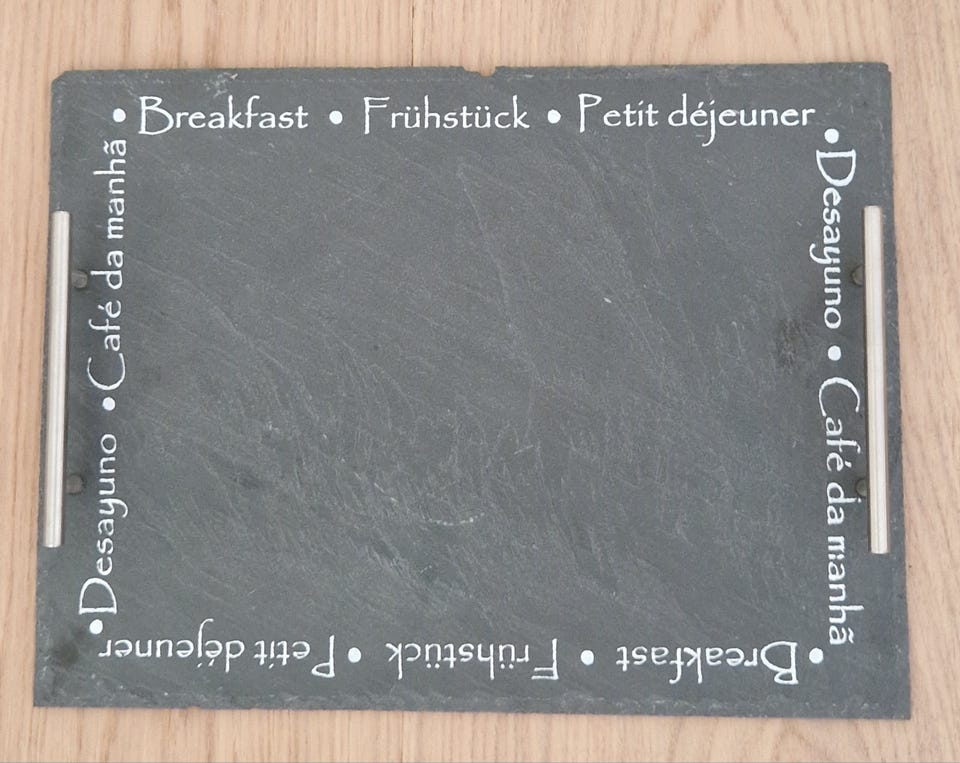 • Breakfast • Frühstück • Petit déjeuner
• Desayuno • Café da manhã
• Breakfast • Frühstück • Petit déjeuner
• Desayuno • Café da manhã